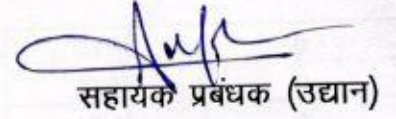 सहायक प्रबंधक (उद्यान)